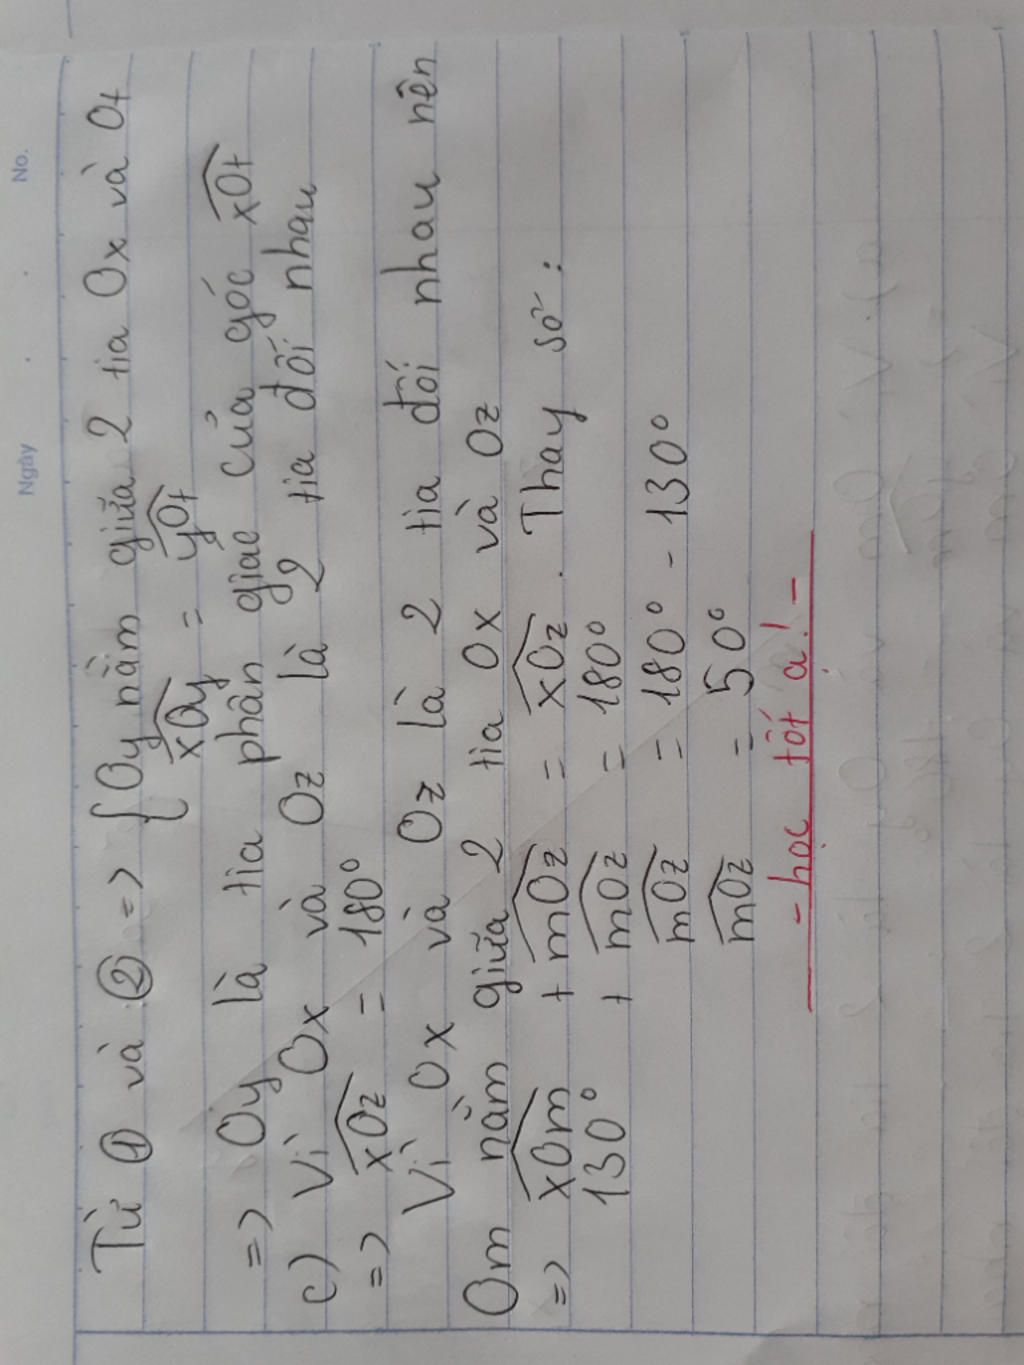 Ngày . . No.
Từ ① và ② => { Oy nằm giữa 2 tia Ox và Ot
xOy = yOt
=> Oy là tia phân giác của góc xOt
c) Vì Ox và Oz là 2 tia đối nhau
=> xOz = 180°
Vì Ox và Oz là 2 tia đối nhau nên
Om nằm giữa 2 tia Ox và Oz
=> xOm + mOz = xOz. Thay số:
130° + mOz = 180°
mOz = 180° - 130°
mOz = 50°
- học tốt ạ! -